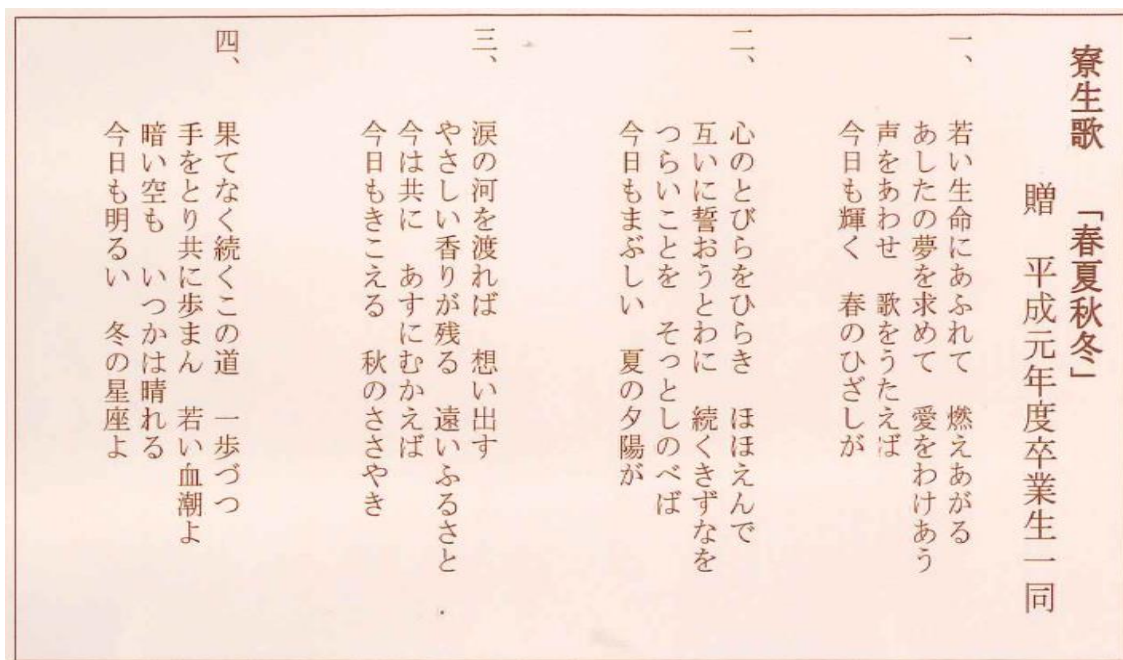 寮生歌 「春夏秋冬」
贈 平成元年度卒業生一同
一、 若い生命にあふれて 燃えあがる
あしたの夢を求めて 愛をわけあう
声をあわせ 歌をうたえば
今日も輝く 春のひざしが
二、 心のとびらをひらき ほほえんで
互いに誓おうとわに 続くきずなを
つらいことを そっとしのべば
今日もまぶしい 夏の夕陽が
三、 涙の河を渡れば 想い出す
やさしい香りが残る 遠いふるさと
今は共に あすにむかえば
今日もきこえる 秋のささやき
四、 果てなく続くこの道 一歩づつ
手をとり共に歩まん 若い血潮よ
暗い空も いつかは晴れる
今日も明るい 冬の星座よ